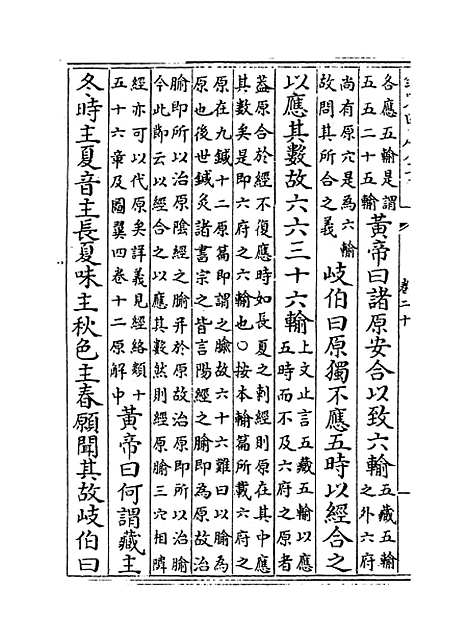 各應五輸是謂
五五二十五輸
黃帝曰諸原安合以致六輸
五藏五輸
之外六府
尚有原穴是為六輸
故問其所合之義
岐伯曰原獨不應五時以經合之
以應其數故六六三十六輸
上文止言五藏五輸以應
五時而不及六府之原者
蓋原合於經不復應時如長夏之刺經則原在其中應
其數矣是即六府之六輸也○按本輸篇所載六府之
原在九鍼十二原篇即謂之腧故六十六難曰以腧為
原也後世鍼灸諸書宗之皆言陽經之腧即為原故治
腧即所以治原陰經之腧并於原故治原即所以治腧
今此節云以經合之以應其數然則經原腧三穴相隣
經亦可以代原矣詳義見經絡類十
五十六章及圖翼四卷十二原解中
黃帝曰何謂藏主
冬時主夏音主長夏味主秋色主春願聞其故岐伯曰
卷二十